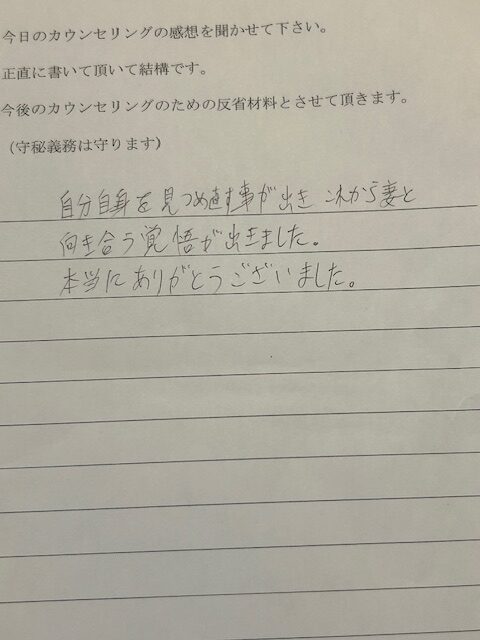 今日のカウンセリングの感想を聞かせて下さい。
正直に書いて頂いて結構です。
今後のカウンセリングのための反省材料とさせて頂きます。
（守秘義務は守ります）
自分自身を見つめ直す事が出き これから妻と
向き合う覚悟が出きました。
本当にありがとうございました。